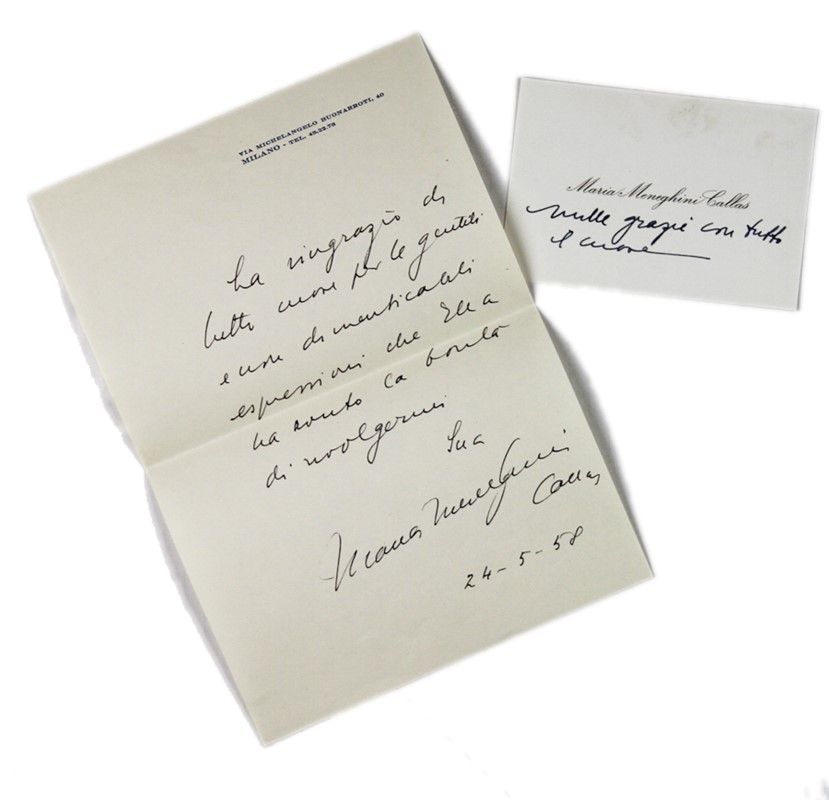 VIA MICHELANGELO BUONARROTI, 40
MILANO - TEL. 45.22.78
La ringrazio di
tutto cuore per le gentili
e non dimenticabili
espressioni che Ella
ha avuto la bontà
di rivolgermi
Sua
Maria Meneghini
Callas
24-5-58
Maria Meneghini Callas
mille grazie con tutto
il cuore